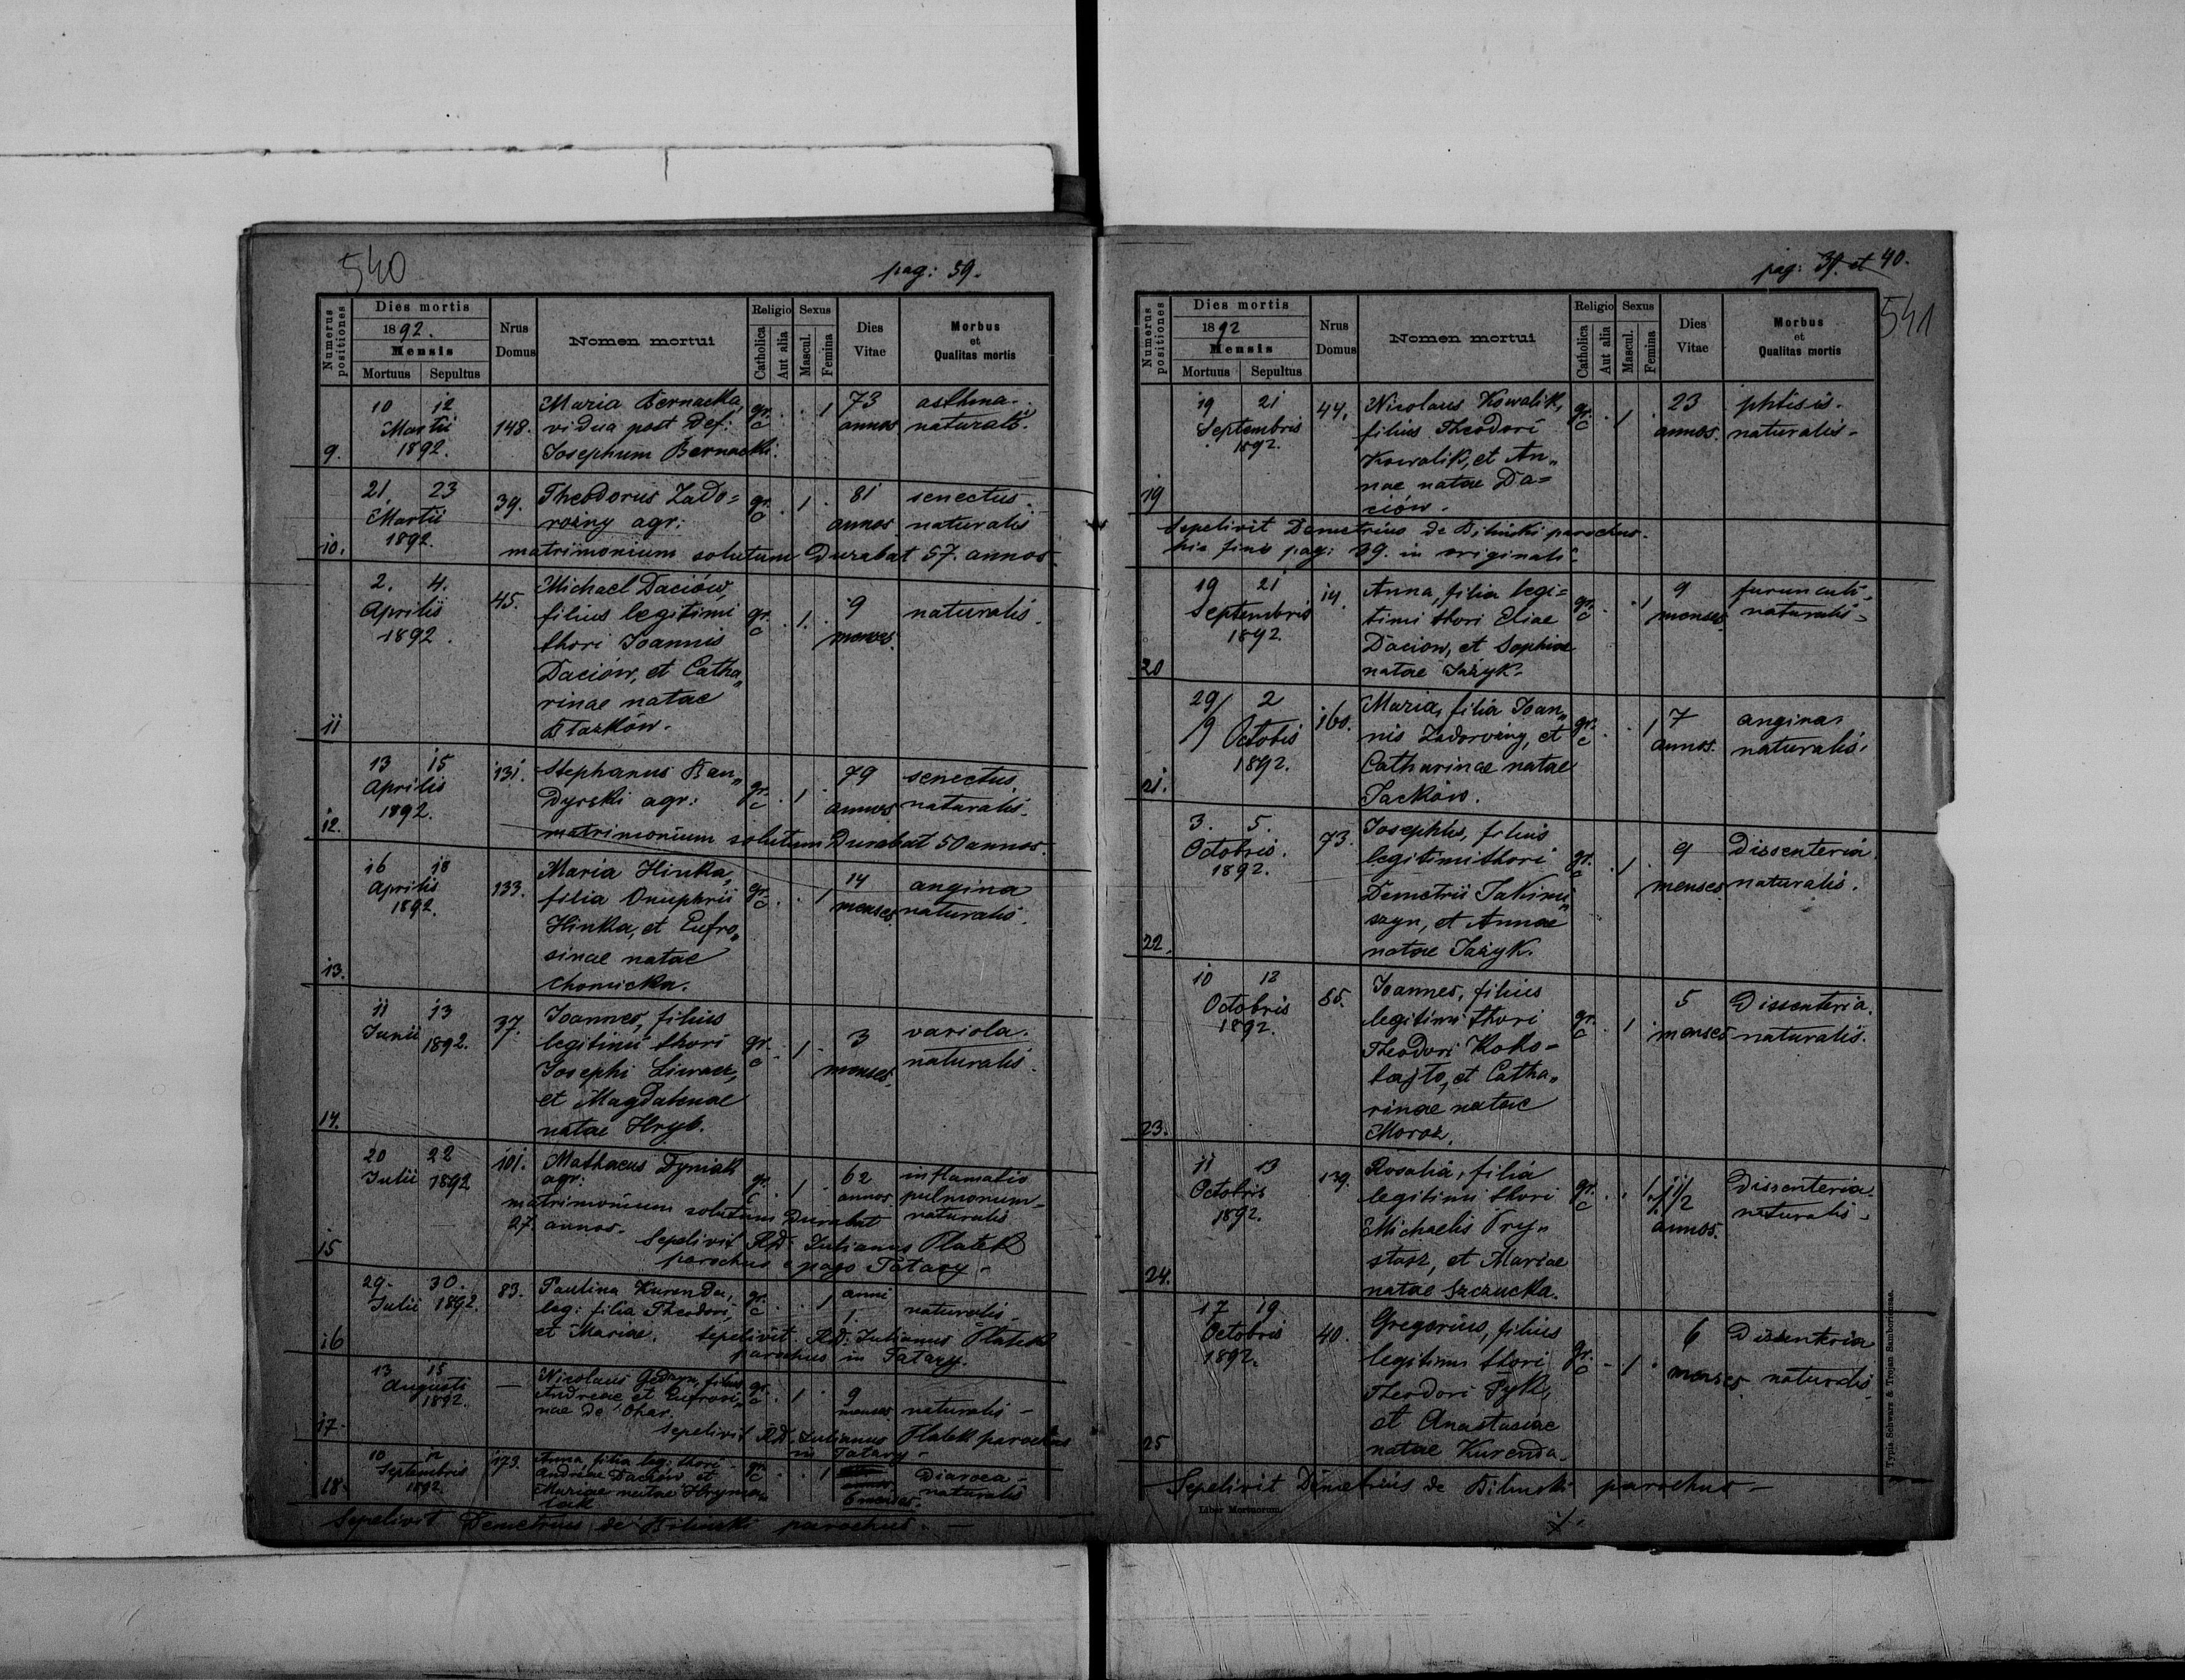 540
pag: 39.
Numerus positiones
Dies mortis
1892.
Mensis
Mortuus Sepultus
Nrus Domus
Nomen mortui
Religio
Catholica
Aut alia
Sexus
Mascul.
Femina
Dies Vitae
Morbus
et
Qualitas mortis
9.
10 12
Martii
1892.
148.
Maria Bernacka,
vidua post Def:
Josephum Bernacki.
gr. c
1
73
annos
asthma.
naturalis.
10.
21. 23
Martii
1892.
39.
Theodorus Zado=
rożny agr:
gr. c
1
81
annos
senectus.
naturalis
matrimonium solutum Durabat 57. annos.
11
2. 4.
Aprilis
1892.
45.
Michael Daciów,
filius legitimi
thori Joannis
Daciów, et Catha„
rinae natae
gr. c
1.
9
menses.
naturalis.
12.
13 15
Aprilis
1892.
131.
Stephanus Ban„
Dyrski agr:
gr. c
1
79
annos
senectus
naturalis.
matrimonium solutum Durabat 50 annos.
13.
16 18
Aprilis
1892.
133.
Maria Hinka,
filia Onuphrii
Hinka, et Eufro„
sinae natae
Chomicka.
gr. c
1
14
menses
angina
naturalis.
14.
11 13
Junii 1892.
37.
Joannes, filius
legitimi thori
Josephi
et Magdalenae
natae Hryb.
gr. c
1
3
menses.
variola.
naturalis.
15
20 22
Julii 1892
101.
Mathaeus Dyniak
agr:
gr. c
1
62
annos
inflamatio
pulmonum
naturalis.
matrimonium solutum Durabat
27. annos.
Sepelivit AD: Julianus Platek
parochus e pago Tatary.
16
29. 30.
Julii 1892.
83.
Paulina Kurenda,
leg: filia Theodori,
et Mariae.
gr. c
1
anni
1.
naturalis.
Sepelivit AD: Julianus Platek
parochus in Tatary.
17.
13 15
Augusti
1892.
—
Nicolaus filius
Andreae et Eufrosi„
nae de
gr. c
1
9
menses
naturalis
Sepelivit AD: Julianus Platek parochus
in Tatary.
18.
10 12
Septembris
1892.
173.
Anna filia leg: thori
Andreae Daciów et
Mariae natae Hryma„
lak
gr. c
1
6 menses.
Diaroea
naturalis
Sepelivit Demetrius de Biliński parochus.
pag: 39. et 40.
541
Numerus positiones
Dies mortis
1892
Mensis
Mortuus Sepultus
Nrus Domus
Nomen mortui
Religio
Catholica
Aut alia
Sexus
Mascul.
Femina
Dies Vitae
Morbus
et
Qualitas mortis
19
19 21
Septembris
1892.
44.
Nicolaus Kowalik,
filius Theodori
Kowalik, et An„
nae natae Da=
ciów.
gr. c
1
23
annos.
phtisis.
naturalis.
Sepelivit Demetrius de Biliński parochus.
hic finis pag: 39. in originali.
20
19 21
Septembris
1892.
14.
Anna, filia legi=
timi thori Eliae
Daciow, et Sophiae
natae Jażyk.
gr. c
1
9
menses.
furunculi.
naturalis.
21.
29/9 2
Octobris
1892.
160.
Maria, filia Joan„
nis Zadorożny, et
Catharinae natae
Jacków.
gr. c
1
7
annos.
angina
naturalis.
22.
3. 5.
Octobris.
1892.
73.
Josephus, filius
legitimi thori
Demetrii Jakimi„
szyn, et Annae
natae Jażyk.
gr. c
1
9
menses
Dissenteria.
naturalis.
23.
10 12
Octobris
1892.
85.
Joannes, filius
legitimi thori
Theodori Koko=
et Catha„
rinae natae
Moroz.
gr. c
1
5
menses
Dissenteria.
naturalis.
24.
11 13
Octobris
1892.
139.
Rosalia, filia
legitimi thori
Michaelis Pry„
stasz, et Mariae
natae Szczucka.
gr. c
1
1 1/2
annos.
Dissenteria.
naturalis.
25
17 19
Octobris
1892.
40.
Gregorius, filius
legitimi thori
Theodori Pyk,
et Anastasiae
natae Kurenda.
gr. c
1
6
menses.
Dissenteria
naturalis.
Sepelivit Demetrius de Biliński parochus
Liber Mortuorum.
Typis Schwarz & Trojan Samboriensis.